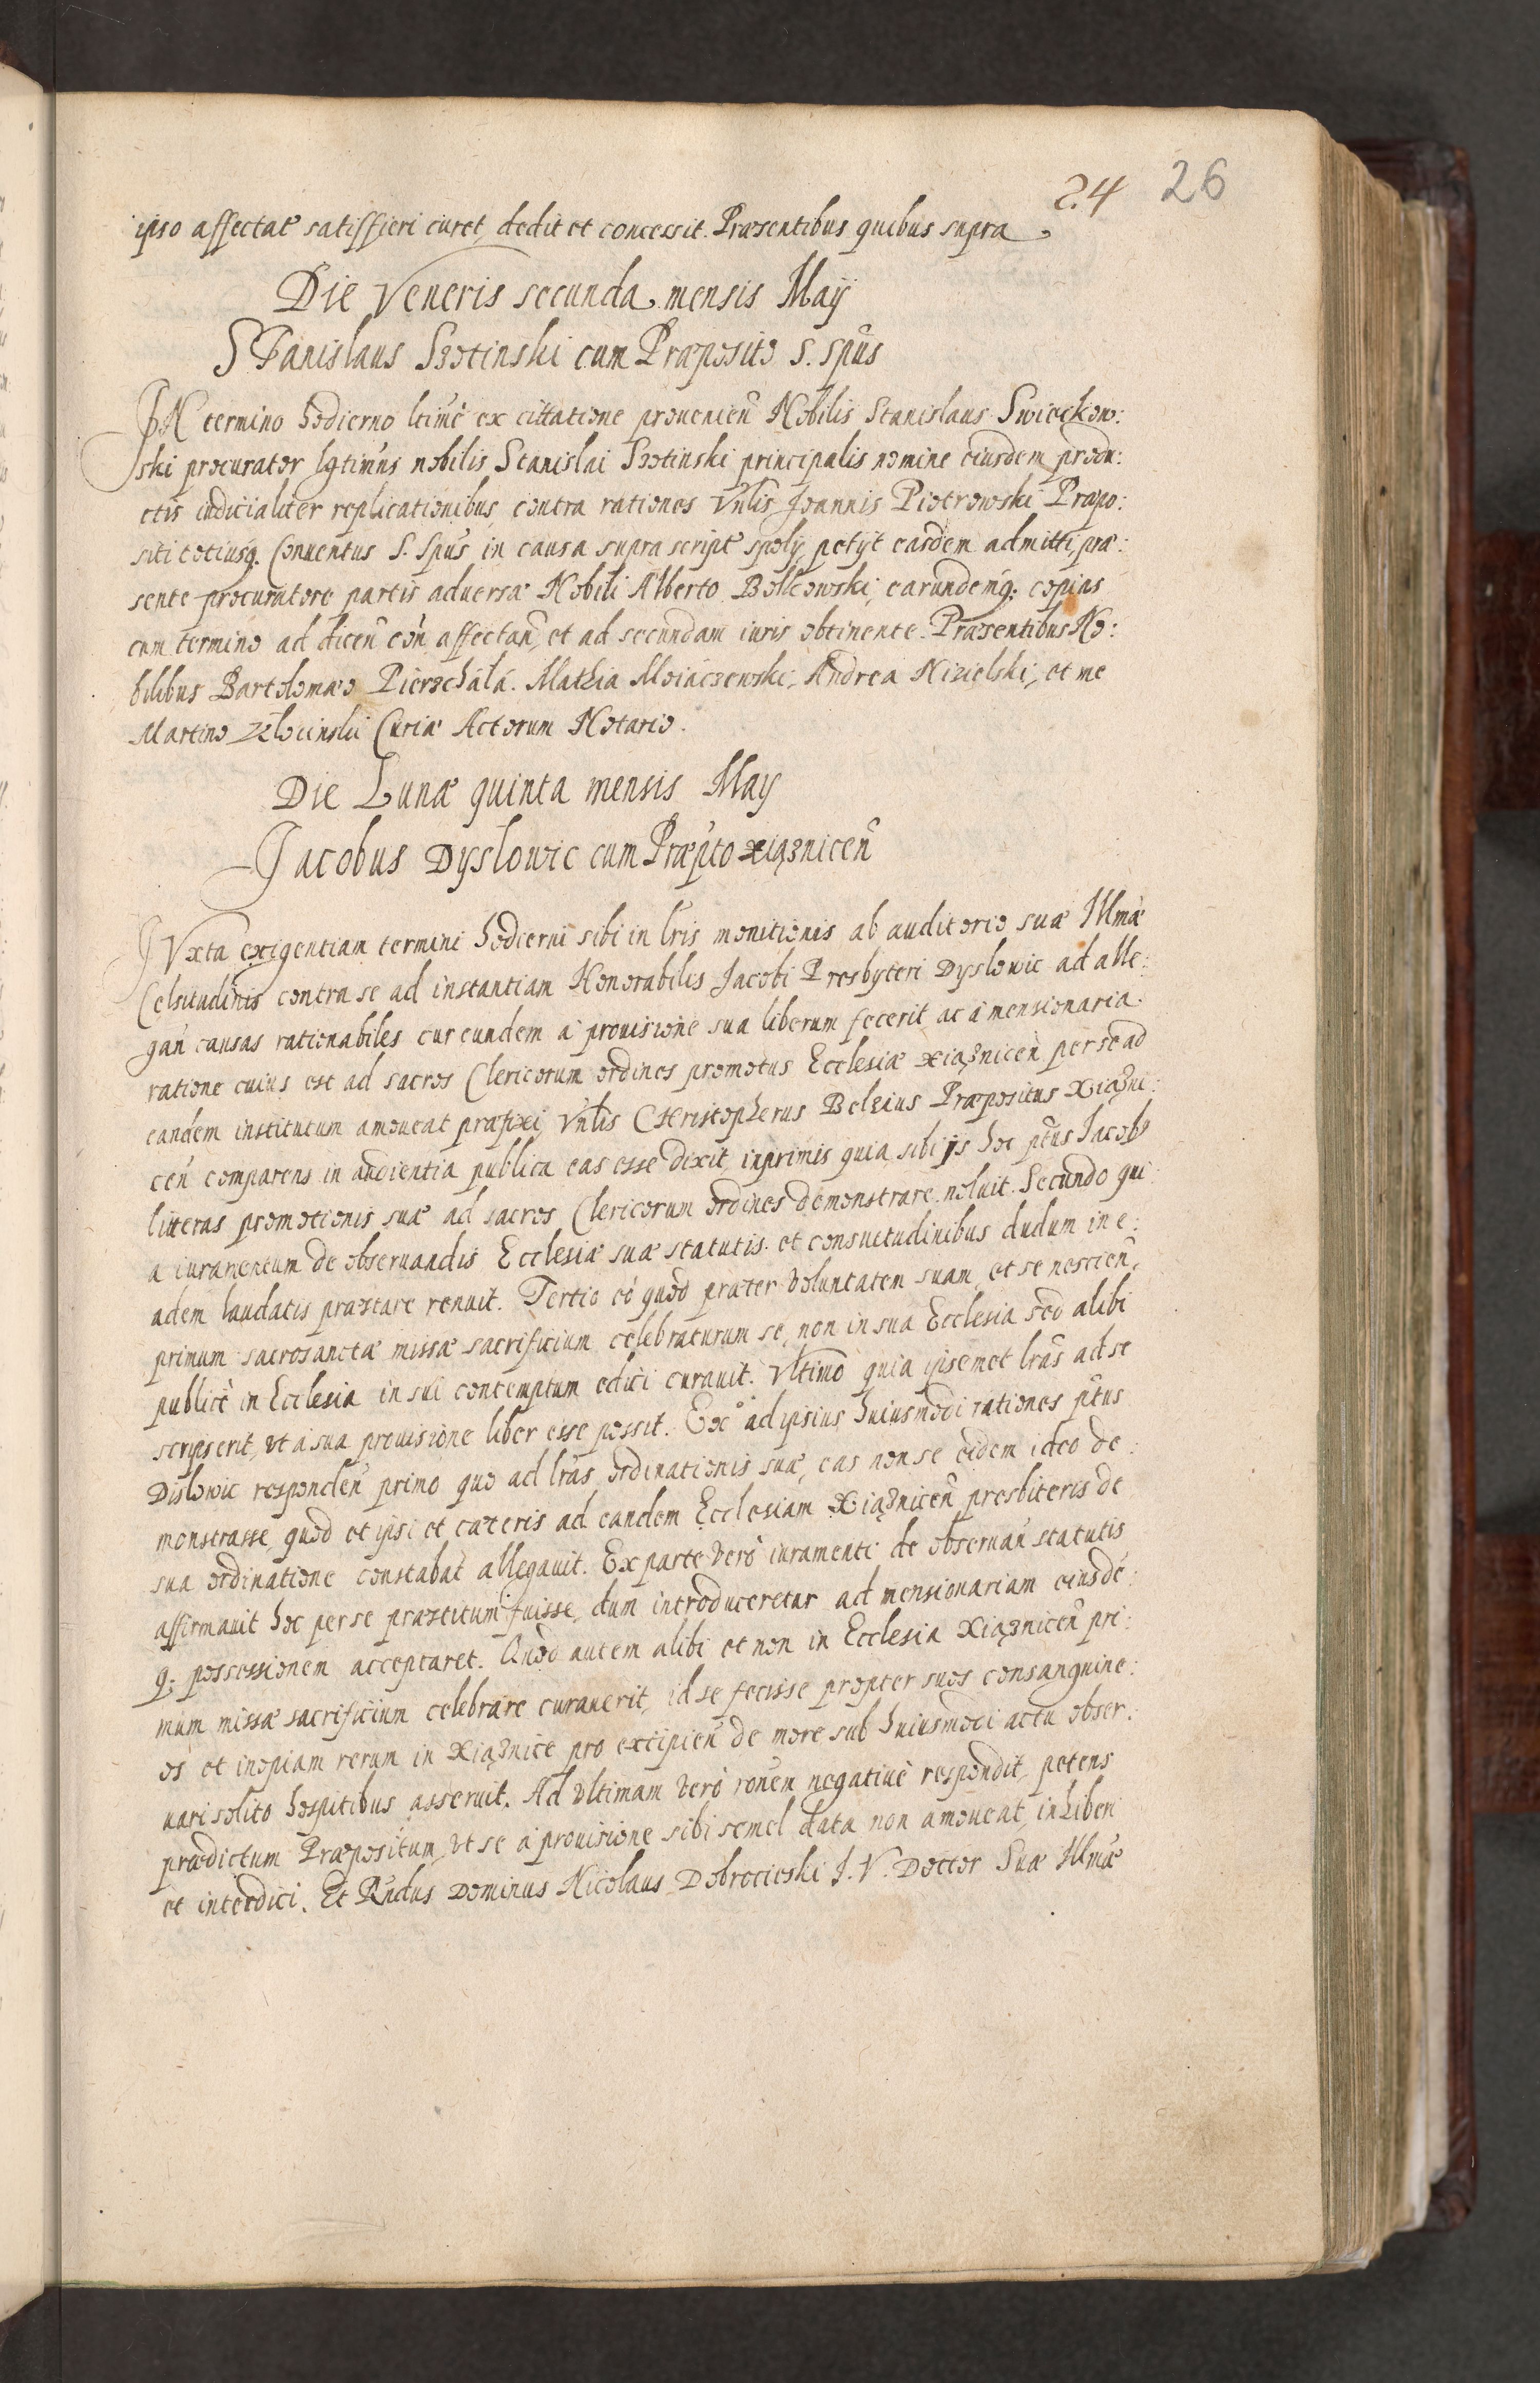 24 26
ipso affectat satisffieri curet, dedit et concessit. Præsentibus quibus supra
Die Veneris secunda mensis Maÿ
Stanislaus Szotinski cum Præposito S. Spũs
IN termino hodierno ltimè ex cittatione provenieñ Nobilis Stanislaus Swieckow:
ski procurator lgtimus nobilis Stanislai Szotinski principalis nomine eiusdem produ:
ctis iudicialiter replicationibus, contra rationes Vnlis Joannis Piotrowski Præpo:
siti totiusq. Conuentus S. Spũs in causa supra script spolÿ, petÿt easdem admitti, præ:
sente procuratore partis aduersæ Nobili Alberto Bolkowski, earundemq; copias
cum termino ad diceñ coñ affectañ, et ad secundam iuris obtinente. Præsentibus No:
bilibus Bartolomæo Pierzchala. Mathia Moiaczewski, Andrea Nizielski, et me
Martino Zlocinski Curiæ Actorum Notario.
Die Lunæ quinta mensis Maÿ
Jacobus Dyslowic cum Præpto Xiązniceñ
IVxta exigentiam termini hodierni sibi in lris monitionis ab auditorio suæ Illmæ
Celsitudinis contra se ad instantiam Honorabilis Jacobi Presbyteri Dyslowic ad alle:
gañ causas rationabiles cur eundem à prouisione sua liberum fecerit ac à mensionaria
ratione cuius est ad sacros Clericorum ordines promotus Ecclesiæ Xiązniceñ per se ad
eandem institutum amoueat præfixi, Vnlis Christopherus Belzius Præpositus Xiązni:
ceñ comparens in audientia publica eas esse dixit, inprimis quia sibi is hoc ptus Jacobus
litteras promotionis suæ ad sacros Clericorum ordines demonstrare noluit. Secundo qui:
a iuramentum de obseruandis Ecclesiæ suæ statutis et consuetudinibus dudum in e:
adem laudatis præstare renuit. Tertio eò quòd præter voluntatem suam, et se nescieñ,
primum sacrosanctæ missæ sacrificium celebraturum se, non in sua Ecclesia sed alibi
publicè in Ecclesia in sui contemptum edici curauit. Vltimò quia ipsemet lrãs ad se
scripserit, vt à sua prouisione liber esse possit. Exº ad ipsius huiusmodi rationes ptus
Dislowic respondeñ primo quo ad lrãs ordinationis suæ, eas non se eidem ideo de:
monstrasse, quod et ipsi et cæteris ad eandem Ecclesiam Xiązniceñ presbiteris de
sua ordinatione constabat allegauit. Ex parte verò iuramenti de obseruañ statutis
affirmauit hoc per se præstitum fuisse, dum introduceretur ad mensionariam eiusdē:
q; possessionem acceptaret. Quòd autem alibi et non in Ecclesia Xiązniceñ pri:
mum missæ sacrificium celebrare curauerit, id se fecisse propter suos consanguine:
os et inopiam rerum in Xiąznice pro excipieñ de more sub huiusmodi actu obser:
uari solito hospitibus asseruit. Ad vltimam verò ronem negatiuè respondit, petens
prædictum Præpositum, vt se à prouisione sibi semel data non amoueat, inhiberi
et interdici. Et Rndus Dominus Nicolaus Dobrocieski J. V. Doctor Suæ Illmæ